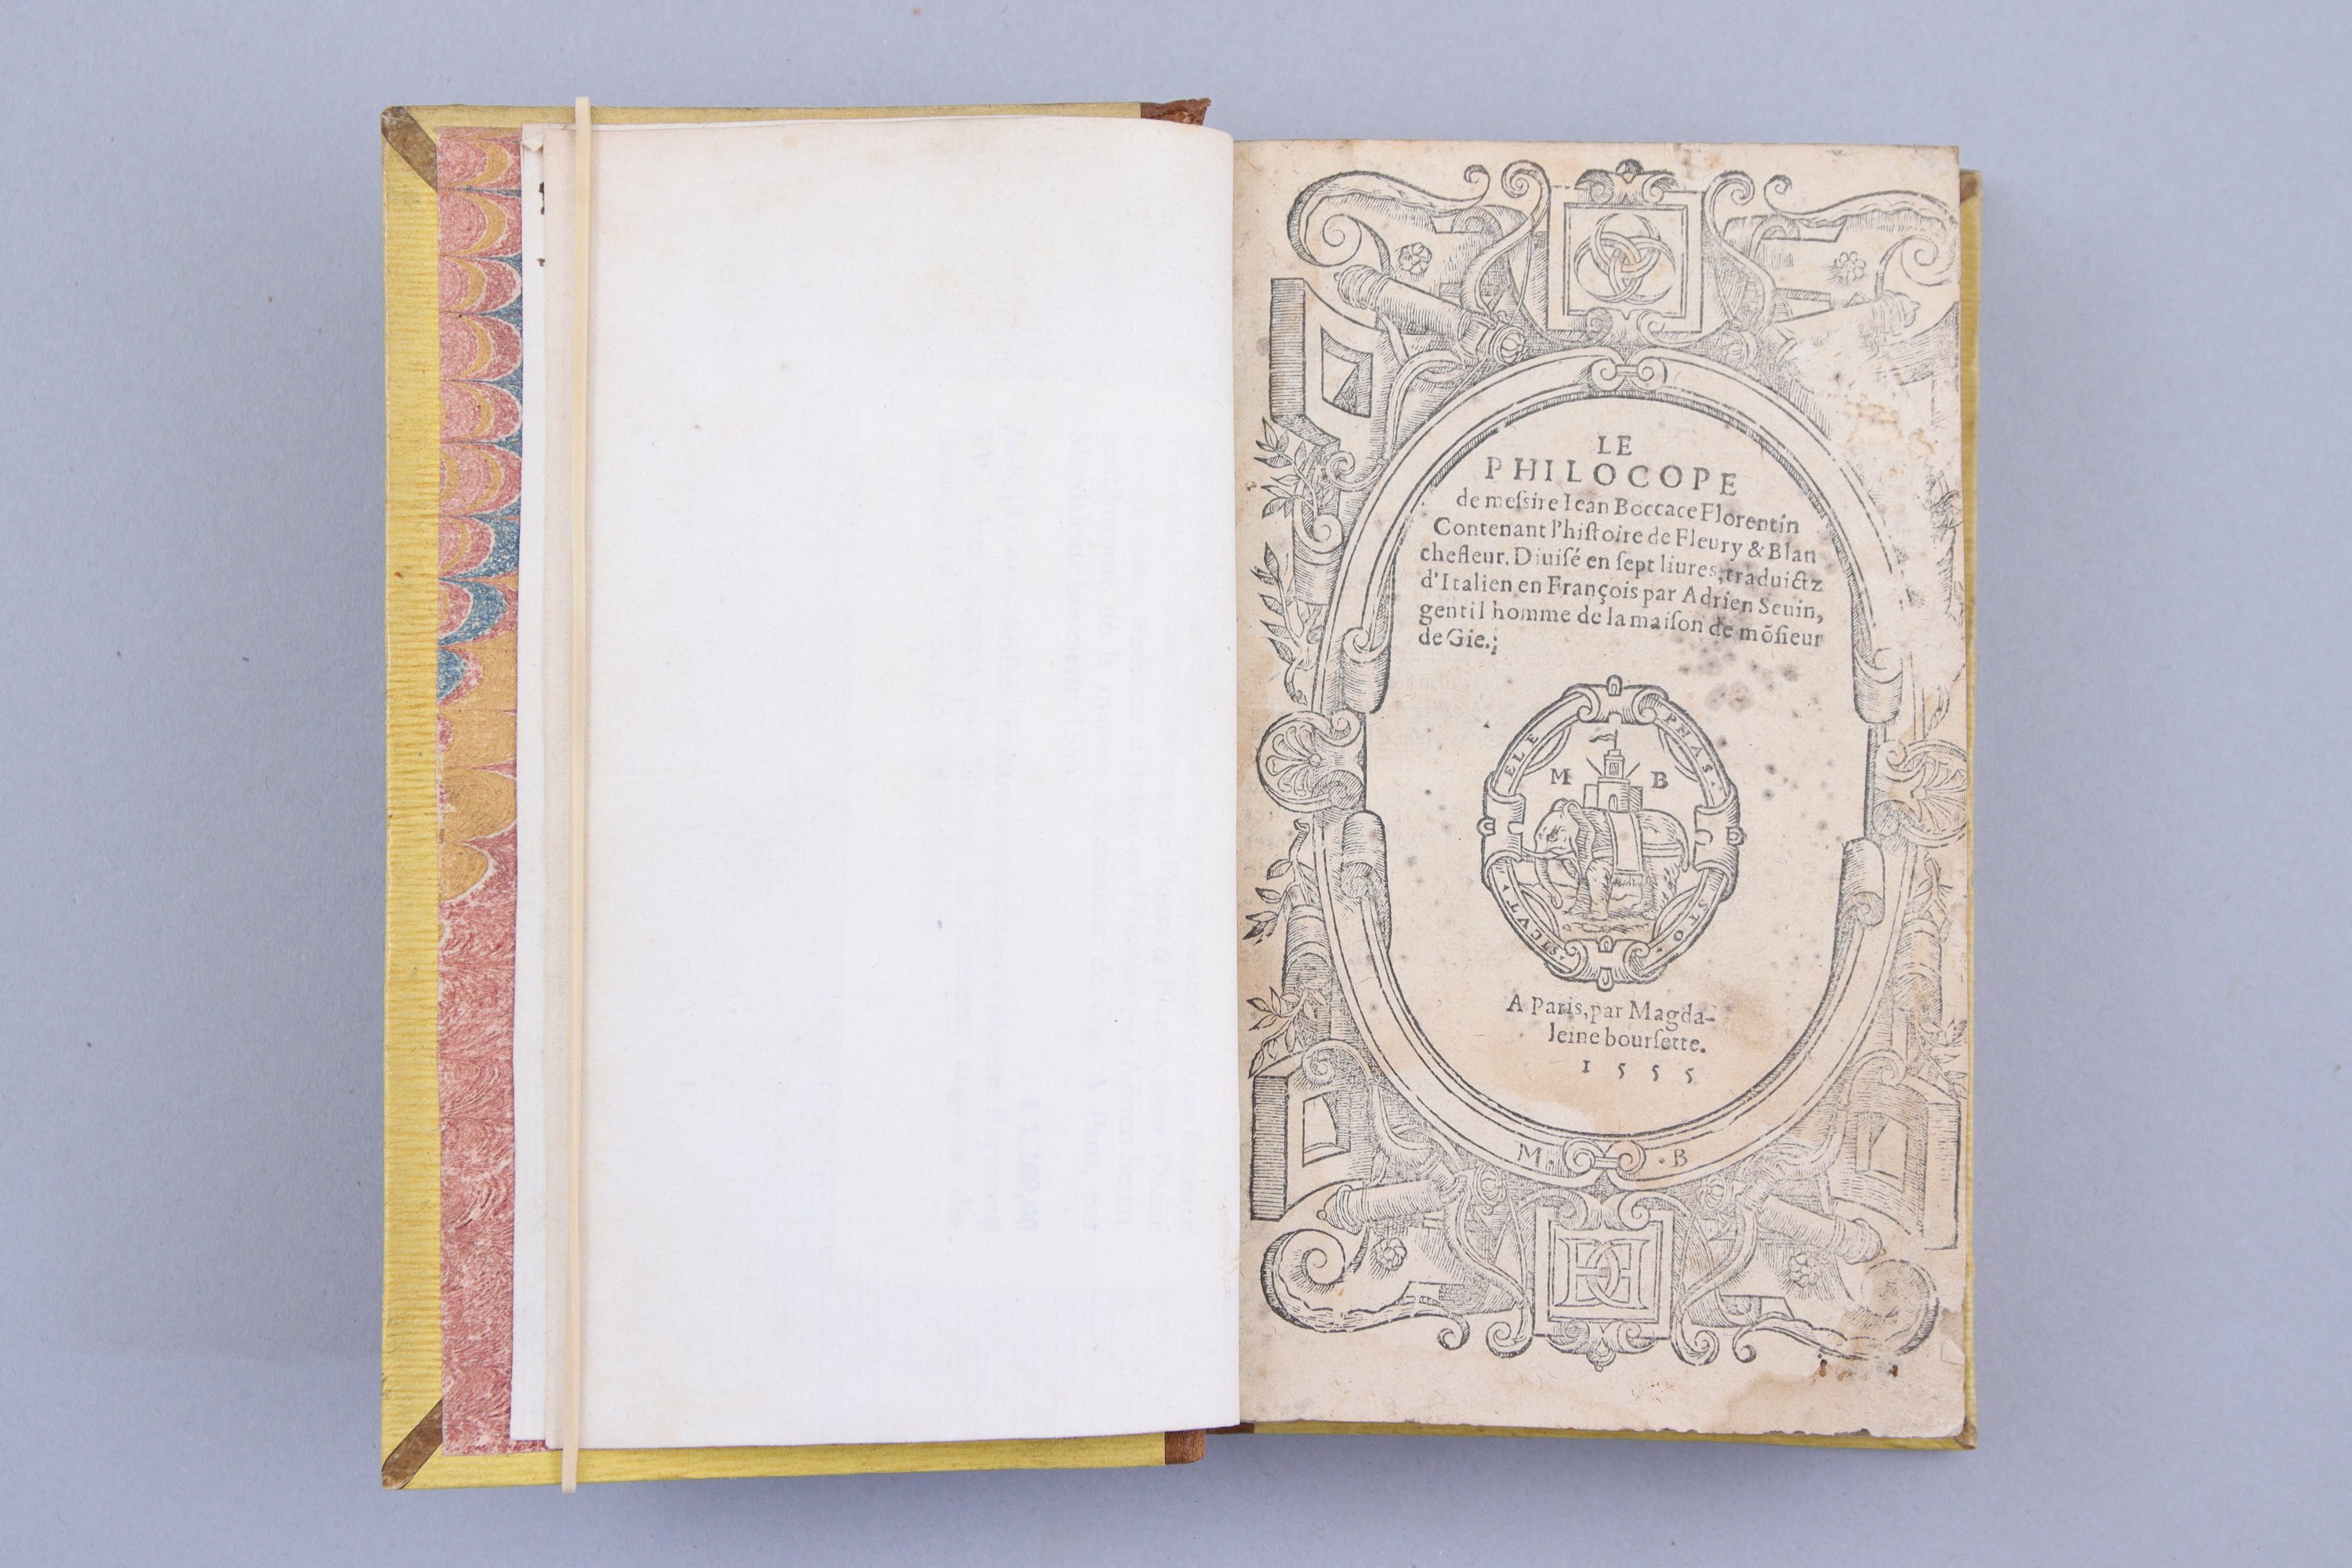 LE
PHILOCOPE
de meſsire Iean Boccace Florentin
Contenant l'hiſtoire de Fleury & Blan
chefleur. Diuiſé en ſept liures, traduictz
d'Italien en François par Adrien Seuin,
gentil homme de la maiſon de mõſieur
de Gie.;
SICVT · ELE PHAS · STO ·
M B
A Paris, par Magda-
leine bourſette.
1 5 5 5
M · · B